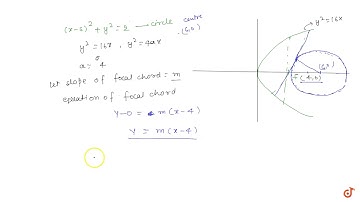 (x-6)² + y² = 2 → circle
centre (6,0)
y² = 16x , y² = 4ax
a = 4
let slope of focal chord = m
equation of focal chord
y-0 = m(x-4)
y = m(x-4)
y² = 16x
(4,0)